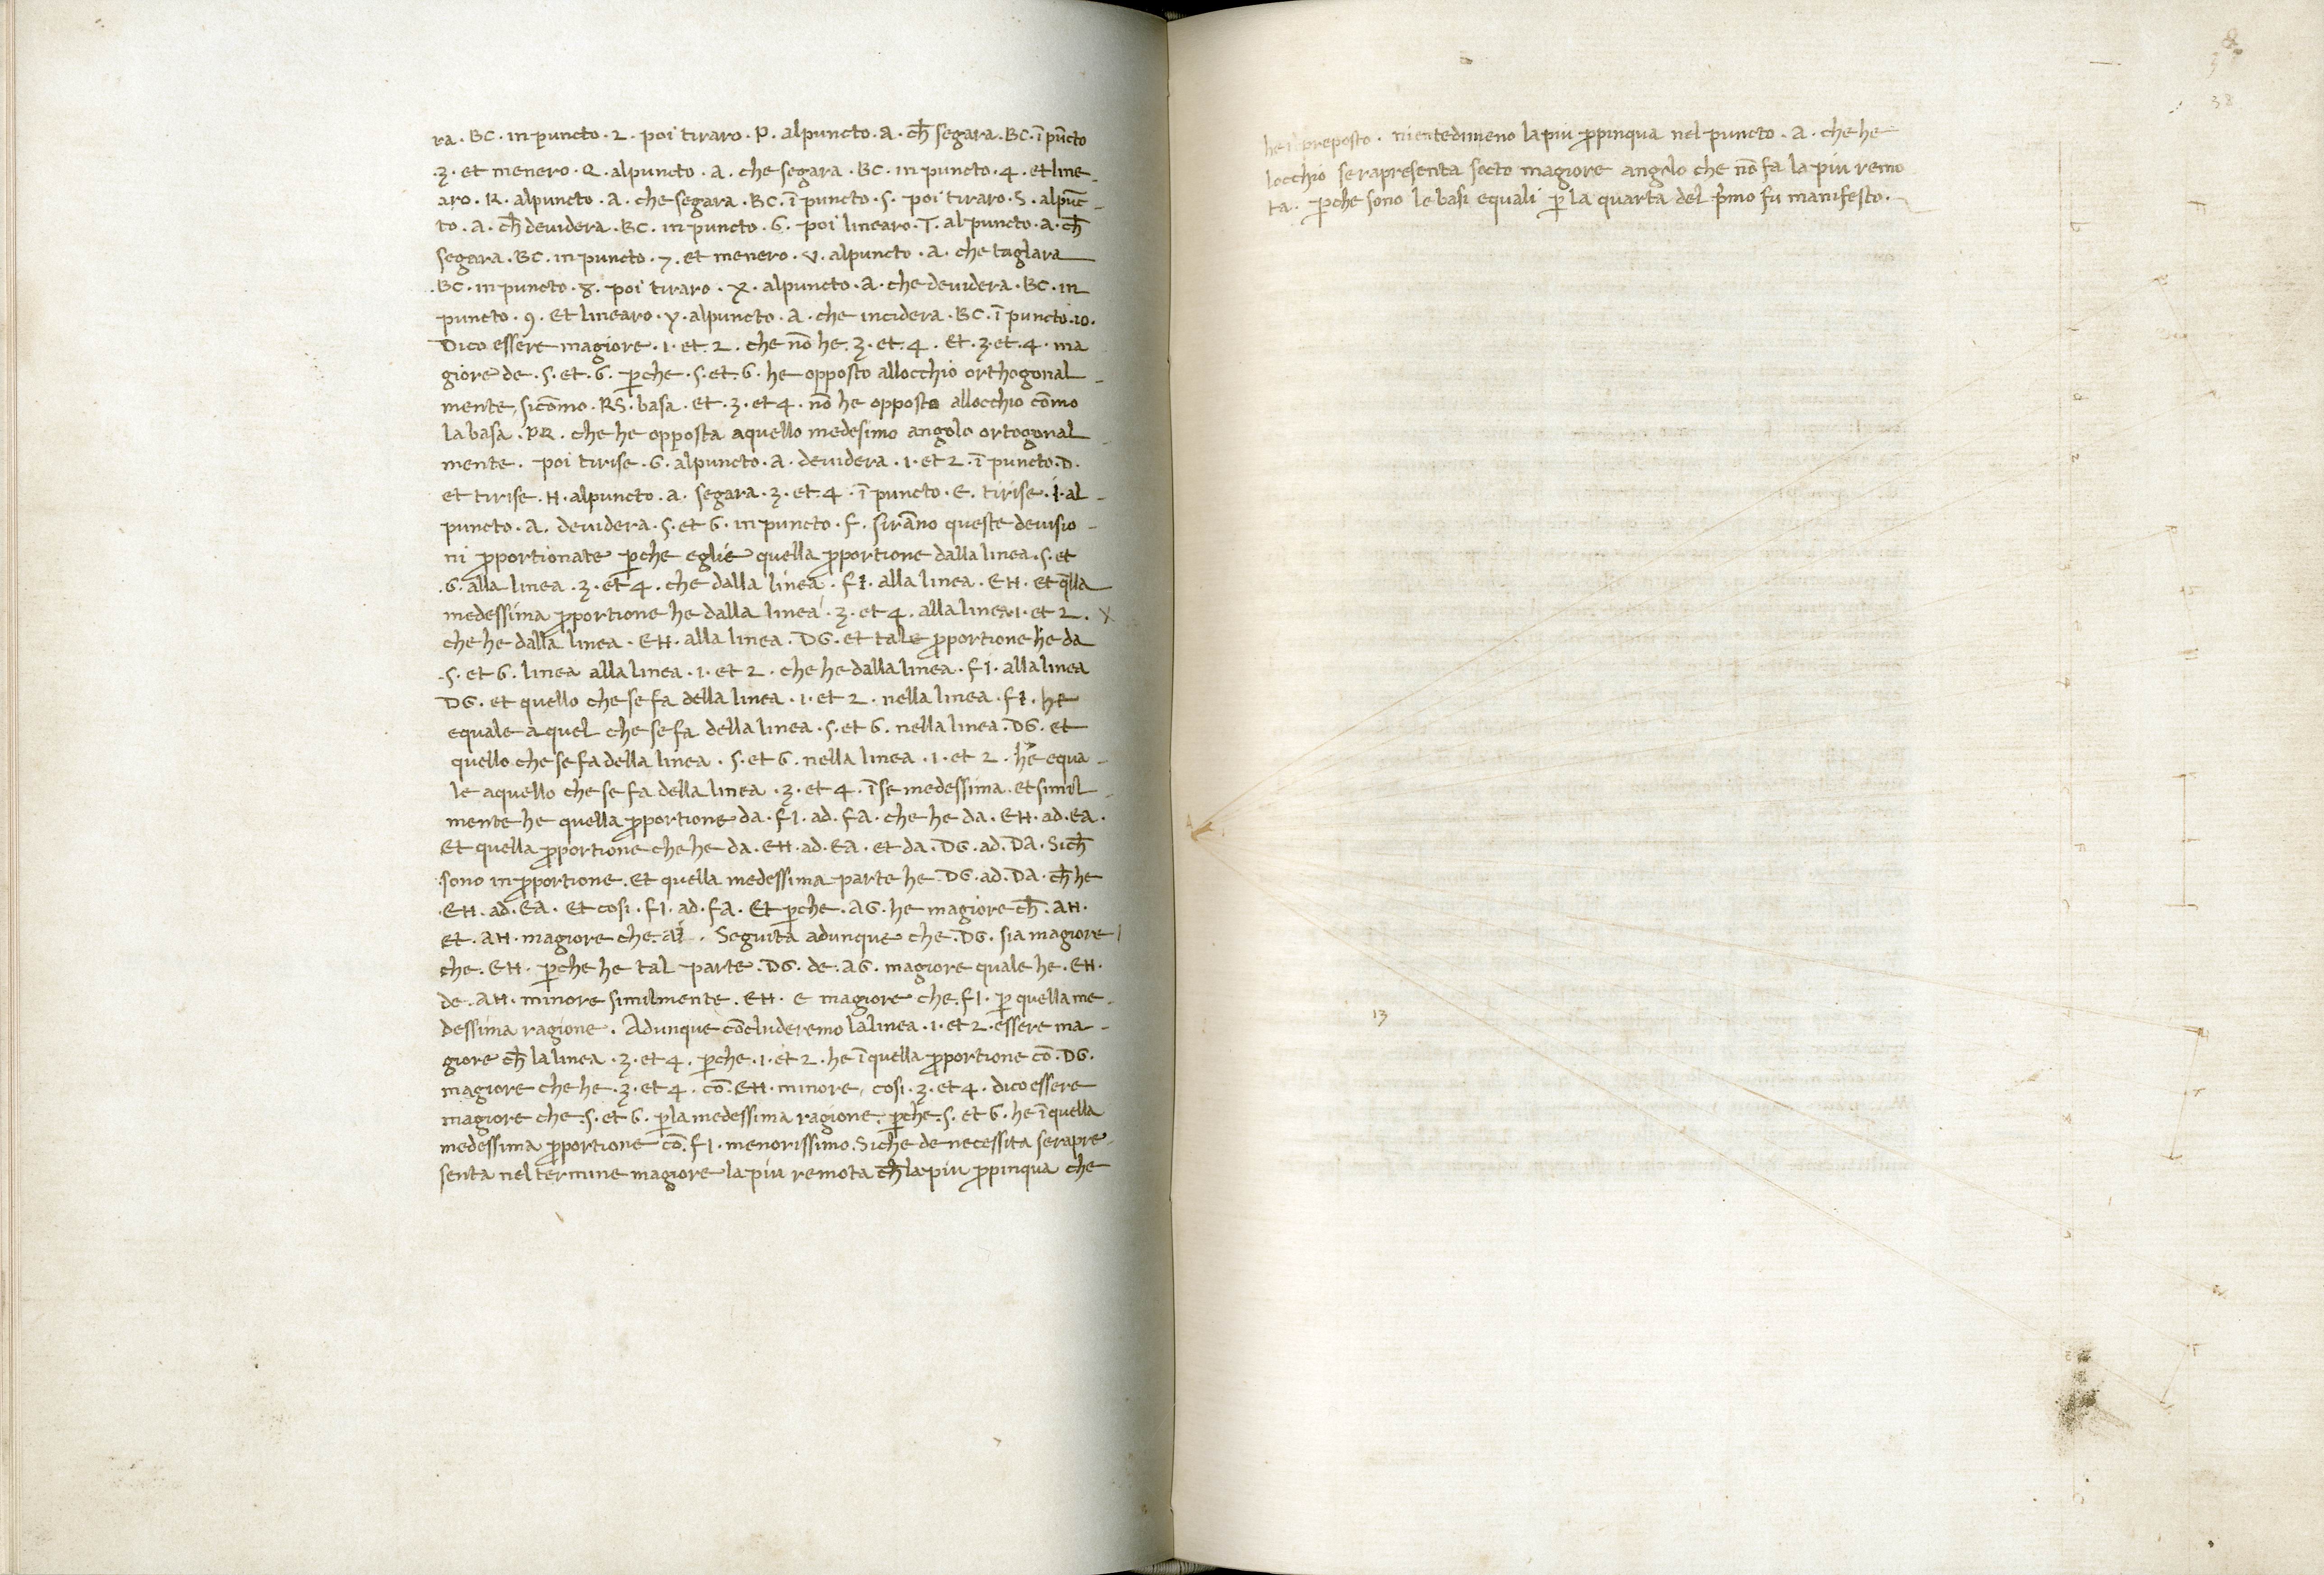 ra . BC . in puncto . 2 . poi tiraro . P . alpuncto . A . ch̄ segara . BC . ī pūcto
.3. et menero . Q . alpuncto . A . che segara . BC . in puncto . 4 . et line-
aro . R . alpuncto . A . che segara . BC . ī puncto . 5 . poi tiraro . S . alpūc-
to . A . ch̄ deuidera . BC . in puncto . 6 . poi linearo . T . alpuncto . A . ch̄
segara . BC . in puncto . 7 . et menero . V . alpuncto . A . che taglara
.BC . in puncto . 8 . poi tiraro . X . alpuncto . A . che deuidera . BC . in
puncto . 9 . Et linearo . y . alpuncto . A . che incidera . BC . ī puncto . 10 .
Dico essere magiore . 1 . et . 2 . che nō he . 3 . et . 4 . Et . 3 . et . 4 . ma
giore de . 5 . et . 6 . p̱che . 5 . et . 6 . he opposto allocchio orthogonal-
mente, sicōmo . RS . basa . Et . 3 . et 4 . nō he opposto allocchio cōmo
la basa . PQ . che he opposta aquello medesimo angolo ortogonal-
mente . poi tirise . G . alpuncto . A . deuidera . 1 . et 2 . ī puncto . D .
et tirise . H . alpuncto . A . segara . 3 . et . 4 . ī puncto . E . tirise . I . al-
puncto . A . deuidera . 5 . et 6 . in puncto . F . sirāno queste deuisio-
ni p̱portionate p̱che eglie quella p̱portione dalla linea . 5 . et
.6 . alla linea . 3 . et 4 . che dalla linea . FI . alla linea . EH . et q̄lla
medessima p̱portione he dalla linea . 3 . et 4 . alla linea . 1 . et 2 . X
che he dalla linea . EH . alla linea . DG . et tale p̱portione he da
.5 . et 6 . linea alla linea . 1 . et 2 . che he dalla linea . FI . alla linea
DG . et quello che se fa della linea . 1 . et 2 . nella linea . FI . he
equale a quel che se fa della linea . 5 . et 6 . nella linea . DG . et
quello che se fa della linea . 5 . et 6 . nella linea . 1 . et 2 . he equa-
le aquello che se fa della linea . 3 . et 4 . ī se medessima . et simil-
mente he quella p̱portione da . FI . ad . FA . che he da . EH . ad . EA .
Et quella p̱portione che he da . EH . ad . EA . et da . DG . ad . DA . Sich̄
sono in p̱portione . Et quella medessima parte he . DG . ad . DA . ch̄ he
.EH . ad . EA . Et cosi . FI . ad . FA . Et p̱che . AG . he magiore ch̄ . AH .
et . AH . magiore che . AI . Seguita adunque che . DG . sia magiore
che . EH . p̱che he tal parte . DG . de . AG . magiore quale he . EH .
de . AH . minore similmente . EH . e magiore che . FI . p̱ quella me-
dessima ragione . Adunque cōcluderemo la linea . 1 . et 2 . essere ma-
giore ch̄ la linea . 3 . et 4 . p̱che . 1 . et 2 . he ī quella p̱portione cō . DG .
magiore che he . 3 . et 4 . cō . EH . minore, cosi . 3 . et 4 . dico essere
magiore che . 5 . et 6 . p̱ la medessima ragione . p̱che . 5 . et 6 . he ī quella
medessima p̱portione cō . FI . menorissimo . Siche de necessita se rapre-
senta nel termine magiore la piu remota ch̄ la piu p̱pinqua che
he il preposto . nientedimeno la piu p̱pinqua nel puncto . A . che he
locchio se rapresenta socto magiore angolo che nō fa la piu remo
ta . p̱che sono le basi equali p̱ la quarta del p̄mo fu manifesto .
38
13